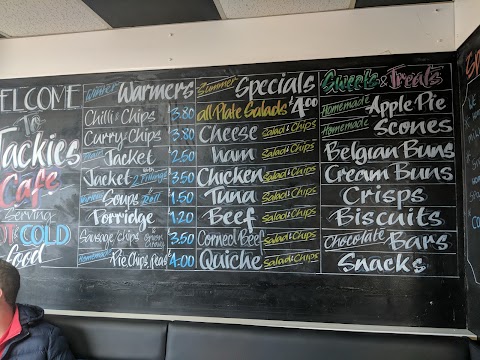 WELCOME
To
Jackies
Cafe
Serving
HOT & COLD
food
Winter Warmers
Chilli & Chips 3.80
Curry & Chips 3.80
Jacket 2.50
Jacket with 2 fillings 3.50
Soups Roll 1.50
Porridge 1.20
Sausage Chips Onion Gravy 3.50
Homemade Pie, Chips, peas 4.00
Summer Specials
all Plate Salads £4.00
Cheese Salad & Chips
Ham Salad & Chips
Chicken Salad & Chips
Tuna Salad & Chips
Beef Salad & Chips
Corned Beef Salad & Chips
Quiche Salad & Chips
Sweets & Treats
Homemade Apple Pie
Homemade Scones
Belgian Buns
Cream Buns
Crisps
Biscuits
Chocolate Bars
Snacks